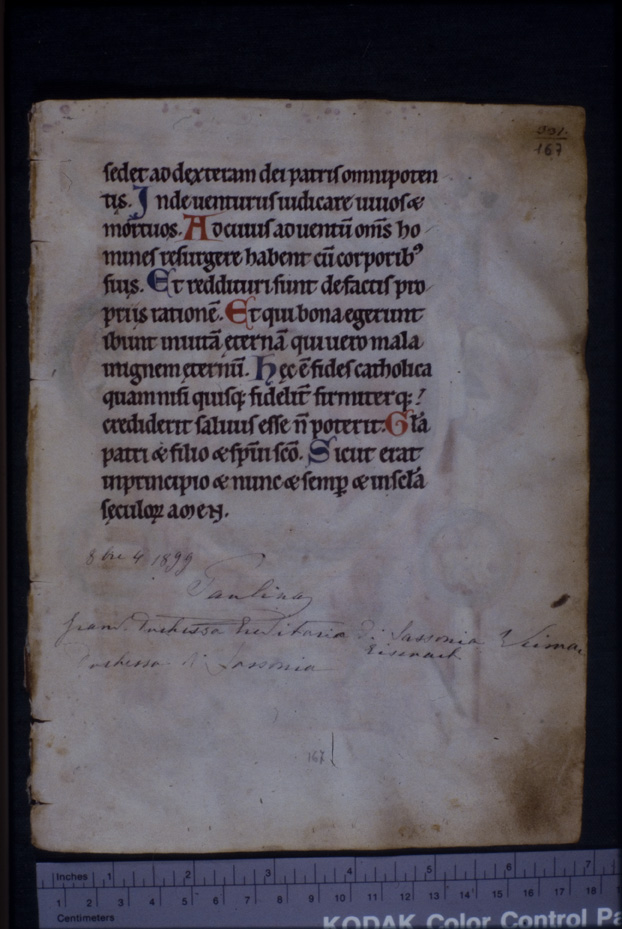 167
sedet ad dexteram dei patris omnipoten
tis. Inde uenturus iudicare uiuos &
mortuos. Ad cuius aduentū om̄s ho
mines resurgere habent cū corporibꝰ
suis. Et reddituri sunt de factis pro
priis rationē. Et qui bona egerunt
ibunt in uitā eternā qui uero mala
in ignem eternū. Hęc ē fides catholica
quam nisi quisq; fidelit̄ firmiterq;
crediderit saluus esse n̄ poterit. Gl̄a
patri & filio & sp̄ui sc̄o. Sicut erat
in principio & nunc & semp̱ & in sc̄la
sęculoꝝ amen.
8bre 4 1899
Paulina
Gran Duchessa Ereditaria di Sassonia Veimar
Eisenach
Duchessa di Sassonia
167
Inches 1 2 3 4 5 6 7
1 2 3 4 5 6 7 8 9 10 11 12 13 14 15 16 17 18
Centimeters
KODAK Color Control Pa